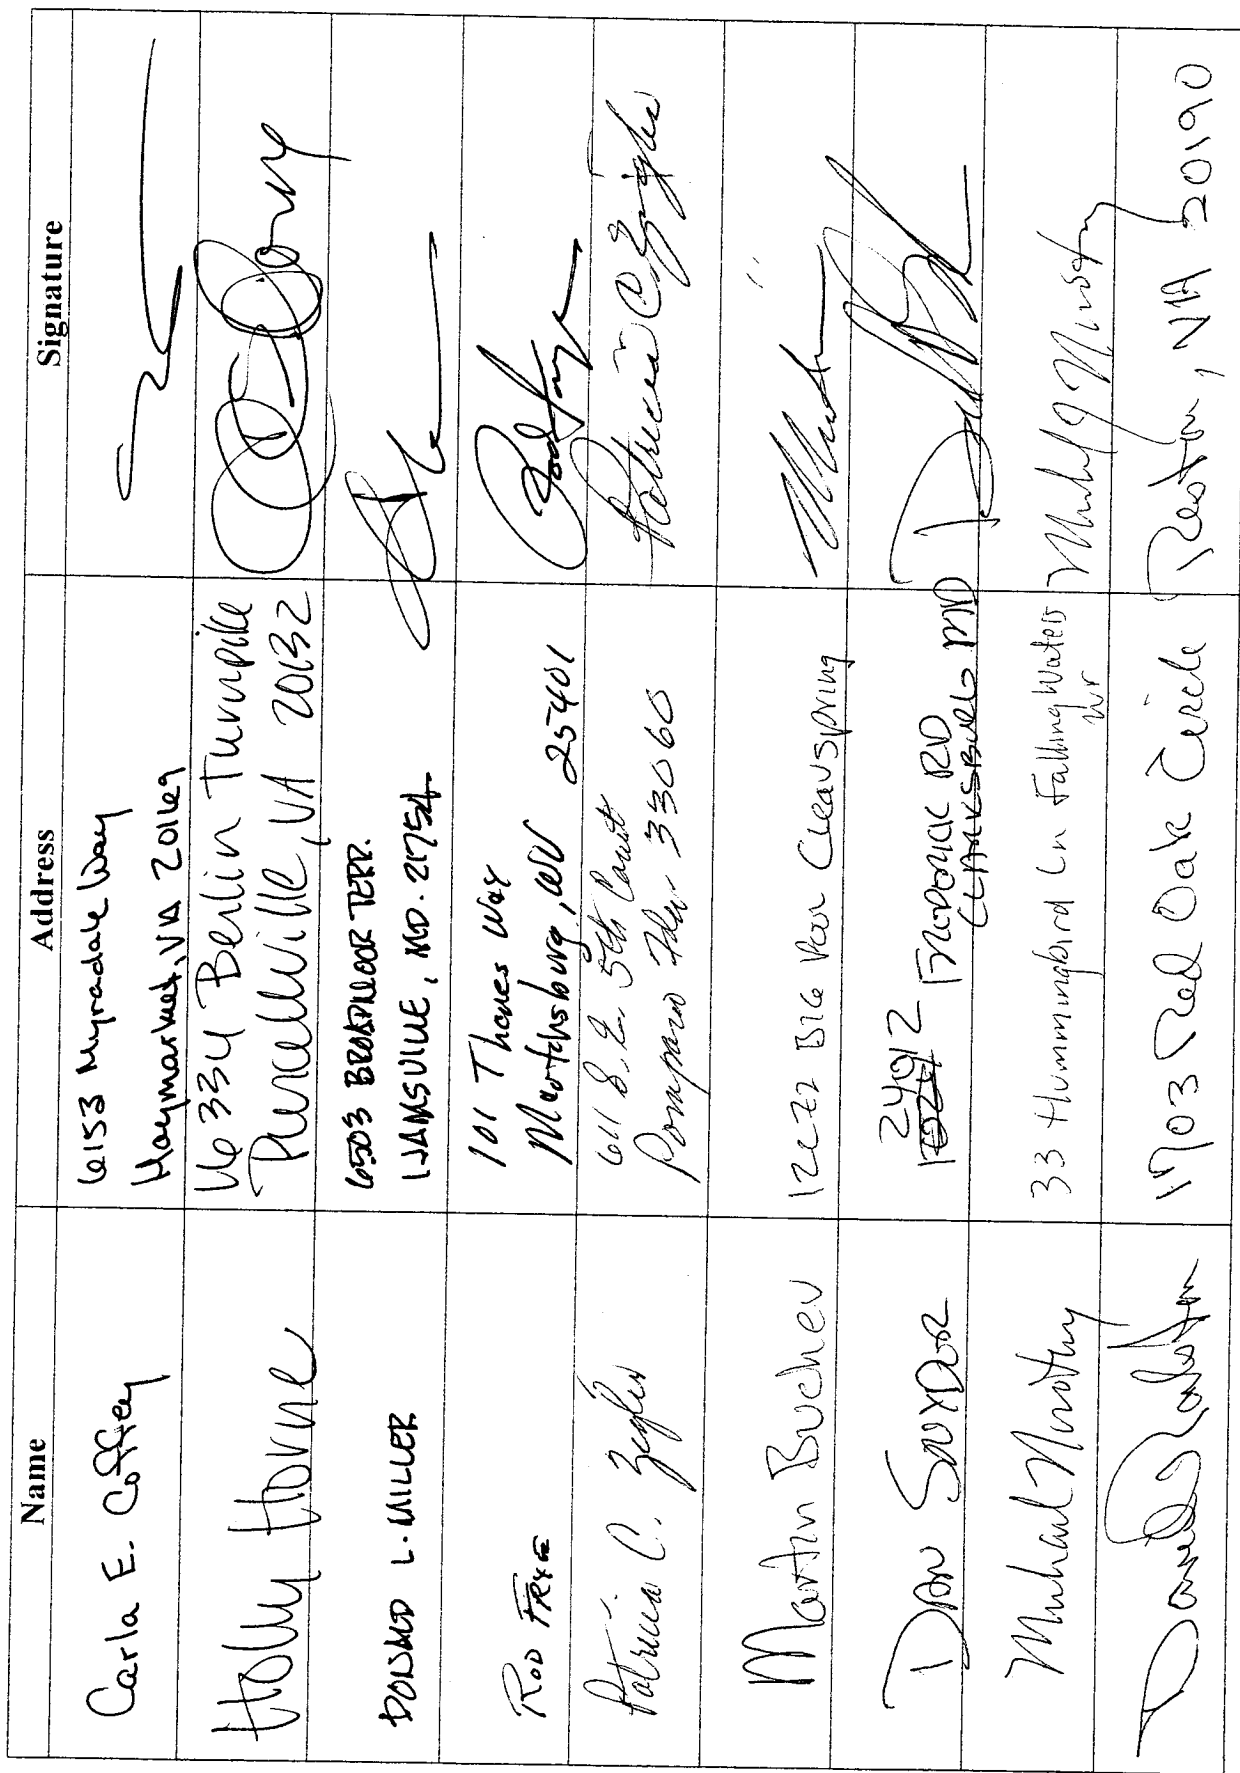 Name Address Signature
Carla E. Coffey
6153 Myradale Way
Haymarket, VA 20169
Holly Horne
16334 Berlin Turnpike
Purcellville, VA 20132
DONALD L. MILLER
6503 BROADMOOR TERR.
IJAMSVILLE, MD. 21754
ROD FRYE
101 Thones Way
Martinsburg, WV 25401
Patricia C. Zeigler
611 S.E. 5th Court
Pompano Fla. 33060
Patricia C Zeigler
Martin Bucher
12272 BIG Pool Clearspring
DAN SNYDER
24912 FREDERICK RD
CLARKSBURG MD
Michael Moothy
33 Hummingbird Ln Falling Waters
WV
1703 Red Oak Circle Reston, VA 20190